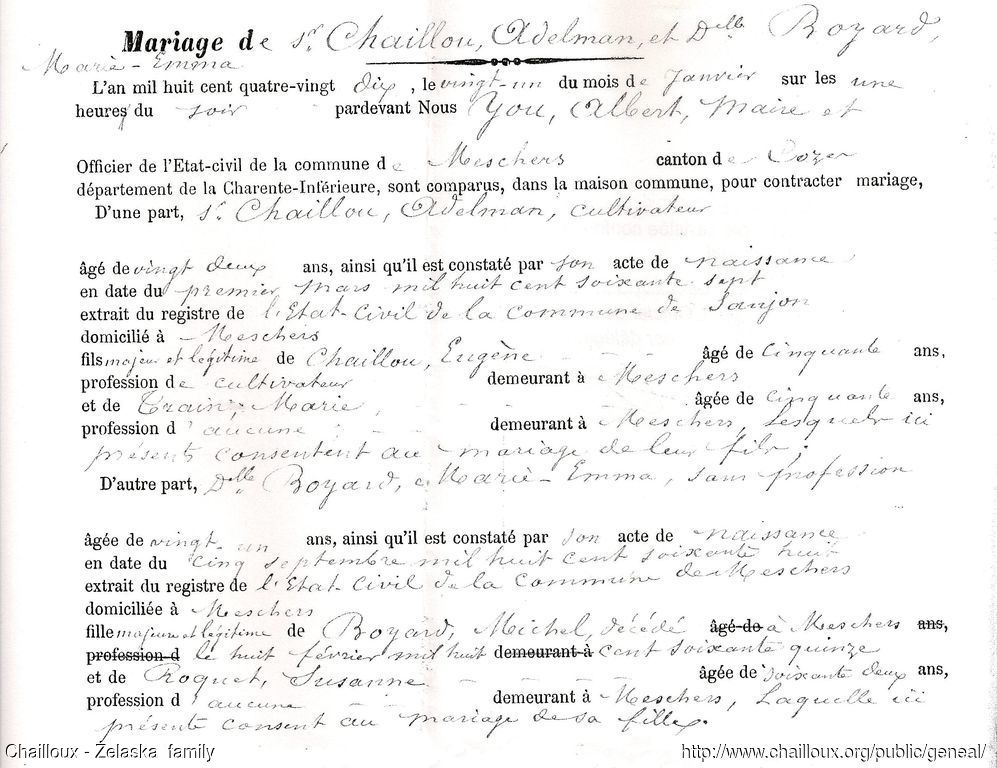 Mariage de Sr. Chaillou, Adelman, et Dlle Boyard,
Marie-Emma
L'an mil huit cent quatre-vingt dix, le vingt-un du mois de Janvier sur les une
heures du soir pardevant Nous You, Albert, Maire et
Officier de l'Etat-civil de la commune de Meschers canton de Cozes
département de la Charente-Inférieure, sont comparus, dans la maison commune, pour contracter mariage,
D'une part, Sr. Chaillou, Adelman, cultivateur
âgé de vingt deux ans, ainsi qu'il est constaté par son acte de naissance
en date du premier mars mil huit cent soixante sept
extrait du registre de l'Etat-Civil de la commune de Saujon
domicilié à Meschers
fils majeur et légitime de Chaillou, Eugène âgé de cinquante ans,
profession de cultivateur demeurant à Meschers
et de Train, Marie, âgée de cinquante ans,
profession d'aucune demeurant à Meschers, Lesquels ici
présents consentent au mariage de leur fils;
D'autre part, Dlle Boyard, Marie-Emma, sans profession
âgée de vingt-un ans, ainsi qu'il est constaté par son acte de naissance
en date du cinq septembre mil huit cent soixante huit
extrait du registre de l'Etat Civil de la commune de Meschers
domiciliée à Meschers
fille majeure et légitime de Boyard, Michel, décédé âgé de à Meschers ans,
profession d le huit février mil huit demeurant à cent soixante quinze
et de Roquet, Susanne âgée de soixante deux ans,
profession d'aucune demeurant à Meschers, Laquelle ici
présente consent au mariage de sa fille.
Chailloux - Żelaska family http://www.chailloux.org/public/geneal/